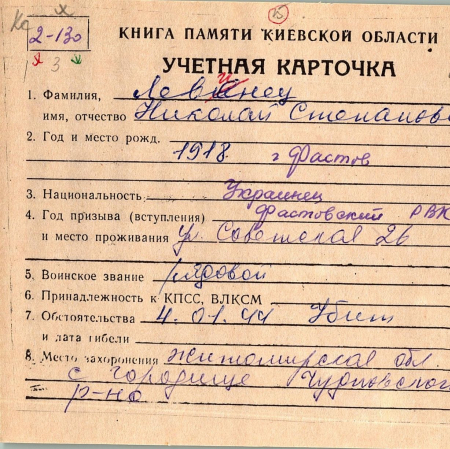 2-130
3
15
КНИГА ПАМЯТИ КИЕВСКОЙ ОБЛАСТИ
УЧЕТНАЯ КАРТОЧКА
1. Фамилия,
имя, отчество Николай Степанов
2. Год и место рожд.
1918 г Фастов
3. Национальность Украинец
4. Год призыва (вступления) Фастовский РВК
и место проживания ул. Советская 26
5. Воинское звание рядовой
6. Принадлежность к КПСС, ВЛКСМ
7. Обстоятельства 4.01.44 Убит
и дата гибели
8. Место захоронения Житомирская обл.
с городище Чудновского
р-на